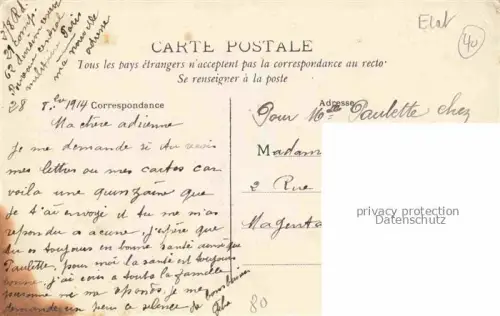 Etat
40
CARTE POSTALE
Tous les pays étrangers n'acceptent pas la correspondance au recto
Se renseigner à la poste
Correspondance
Adresse
28 1914
Ma chère adrienne
Je me demande si tu reçois
mes lettres ou mes cartes car
voila une quinzaine que
je t'ai envoyé et tu ne m'as
repondu a aucune, j'espère que
tu es toujours en bonne santé ainsi que
Paulette, pour moi la santé est toujours
bonne, j'ai écris a toute la famille
personne ne me reponds, je me
demande un peu ce silence
Pour Mlle Paulette chez
Madam
2 Rue
Magenta
privacy protection
Datenschutz
80
Paris
ma nouvelle
adresse